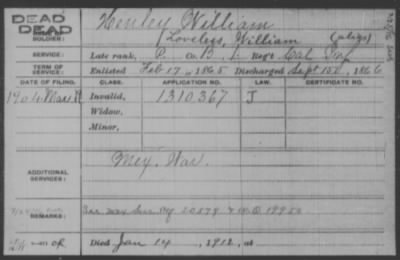 DEAD
DEAD
Henley William
SOLDIER:
(Loveless, William (alias)
SERVICE:
Late rank, P. Co. B, 1. Reg't Cal Inf
TERM OF SERVICE:
Enlisted Feb 17, 1865 Discharged Sept 15, 1866
DATE OF FILING. CLASS. APPLICATION NO. LAW. CERTIFICATE NO.
1904 Mar Invalid, 1310367 J
Widow,
Minor,
ADDITIONAL SERVICES:
Mex. War.
REMARKS:
See Mex Sur 20579
Died Jan 14, 1912, at